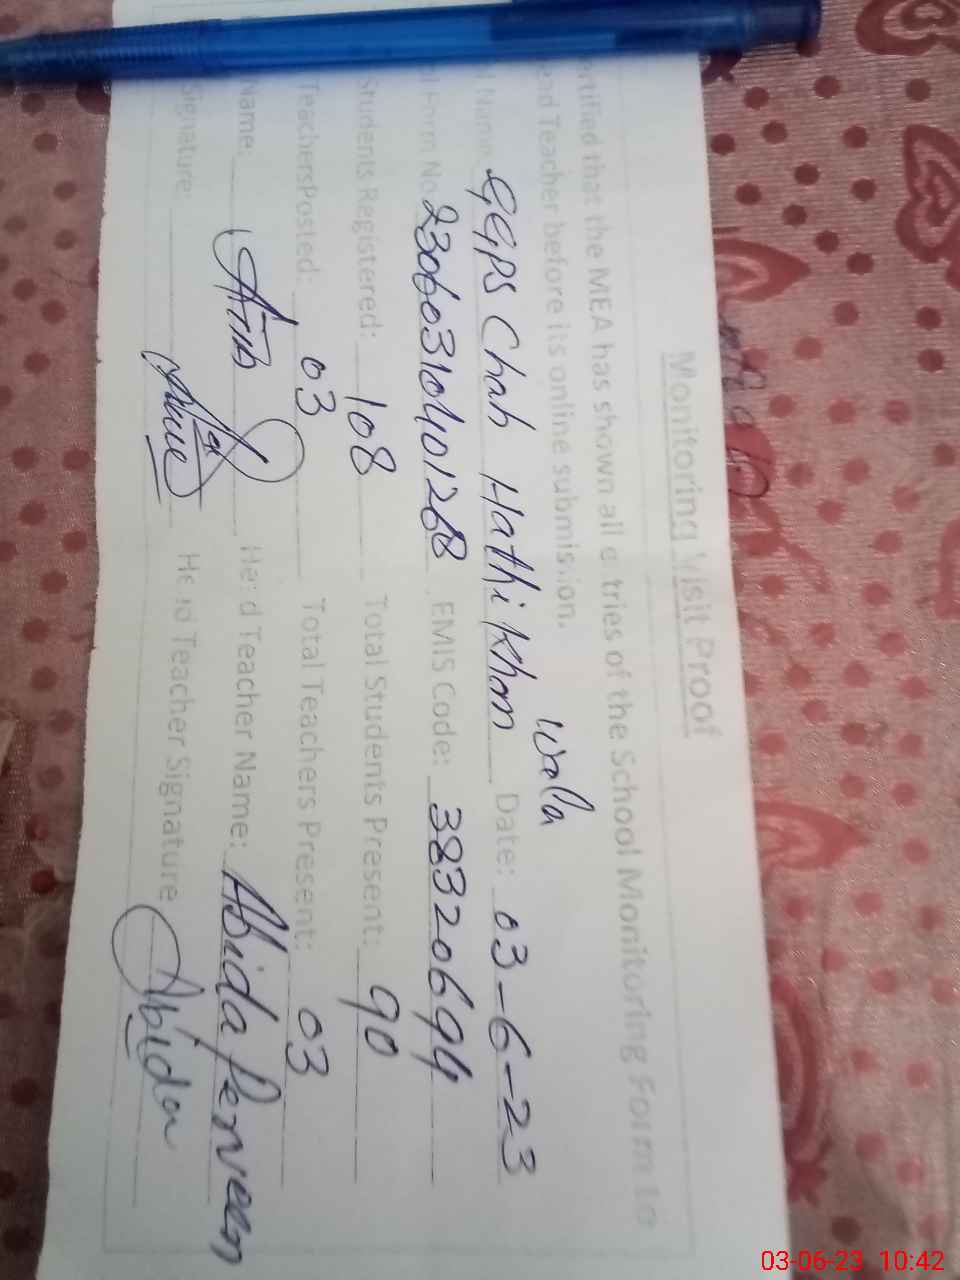 Monitoring Visit Proof
ertified that the MEA has shown all entries of the School Monitoring Form to
ead Teacher before its online submission.
l Name GGPS Chah Hathi Khan wala Date: 03-6-23
l Form No. 23060310401268 EMIS Code: 38320694
Students Registered: 108 Total Students Present: 90
TeachersPosted: 03 Total Teachers Present: 03
Name: Head Teacher Name: Abida Perveen
Signature: Head Teacher Signature Abida
03-06-23 10:42